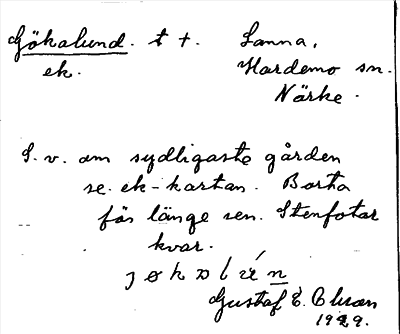 Gökalund. t +. Sanna,
ek. Hardemo sn.
Närke.
S. v. om sydligaste gården
se. ek-kartan. Borta
för länge sen. Stenfotar
kvar.
Gustaf E. Olsson
1929.